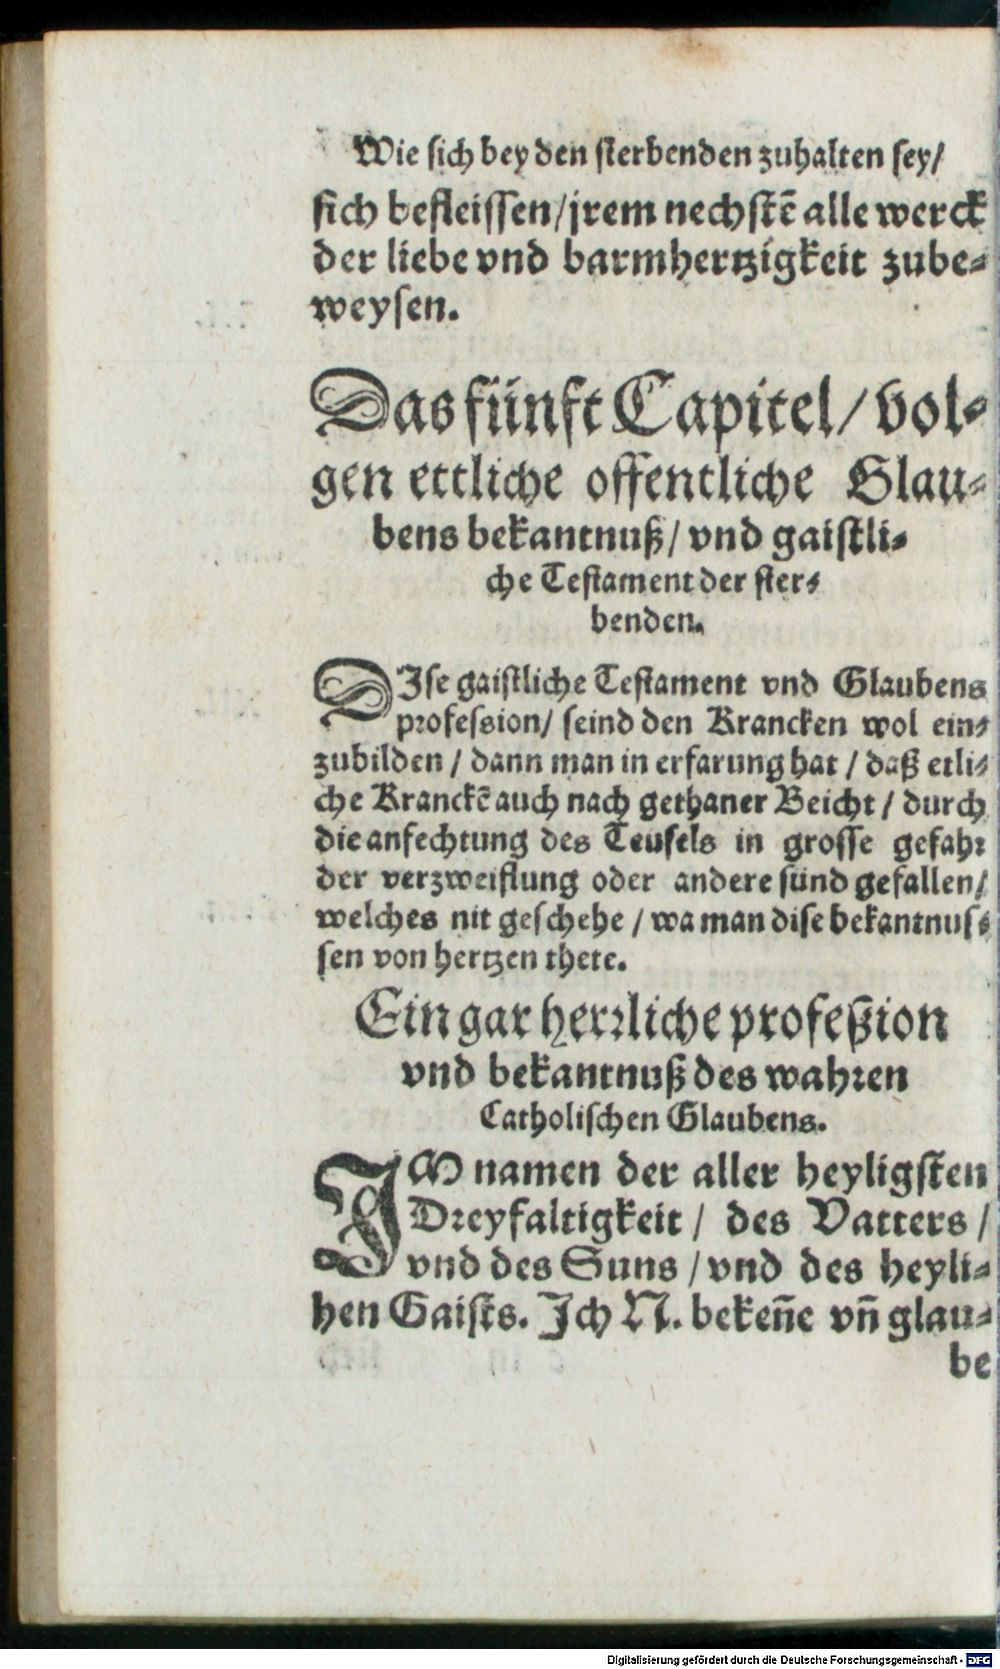 Wie sich bey den sterbenden zuhalten sey/
sich befleissen/jrem nechstẽ alle werck
der liebe vnd barmhertzigkeit zube-
weysen.
Das fünft Capitel/ vol-
gen ettliche offentliche Glau-
bens bekantnuß/ vnd gaistli-
che Testament der ster-
benden.
DIse gaistliche Testament vnd Glaubens
profession/ seind den Krancken wol ein-
zubilden / dann man in erfarung hat / daß etli-
che Kranckẽ auch nach gethaner Beicht / durch
die anfechtung des Teufels in grosse gefahr
der verzweiflung oder andere sünd gefallen/
welches nit geschehe / wa man dise bekantnus-
sen von hertzen thete.
Ein gar herrliche profeßion
vnd bekantnuß des wahren
Catholischen Glaubens.
IM namen der aller heyligsten
Dreyfaltigkeit / des Vatters /
vnd des Suns / vnd des heyli-
hen Gaists. Ich N. bekeñe vñ glau-
be
Digitalisierung gefördert durch die Deutsche Forschungsgemeinschaft - DFG